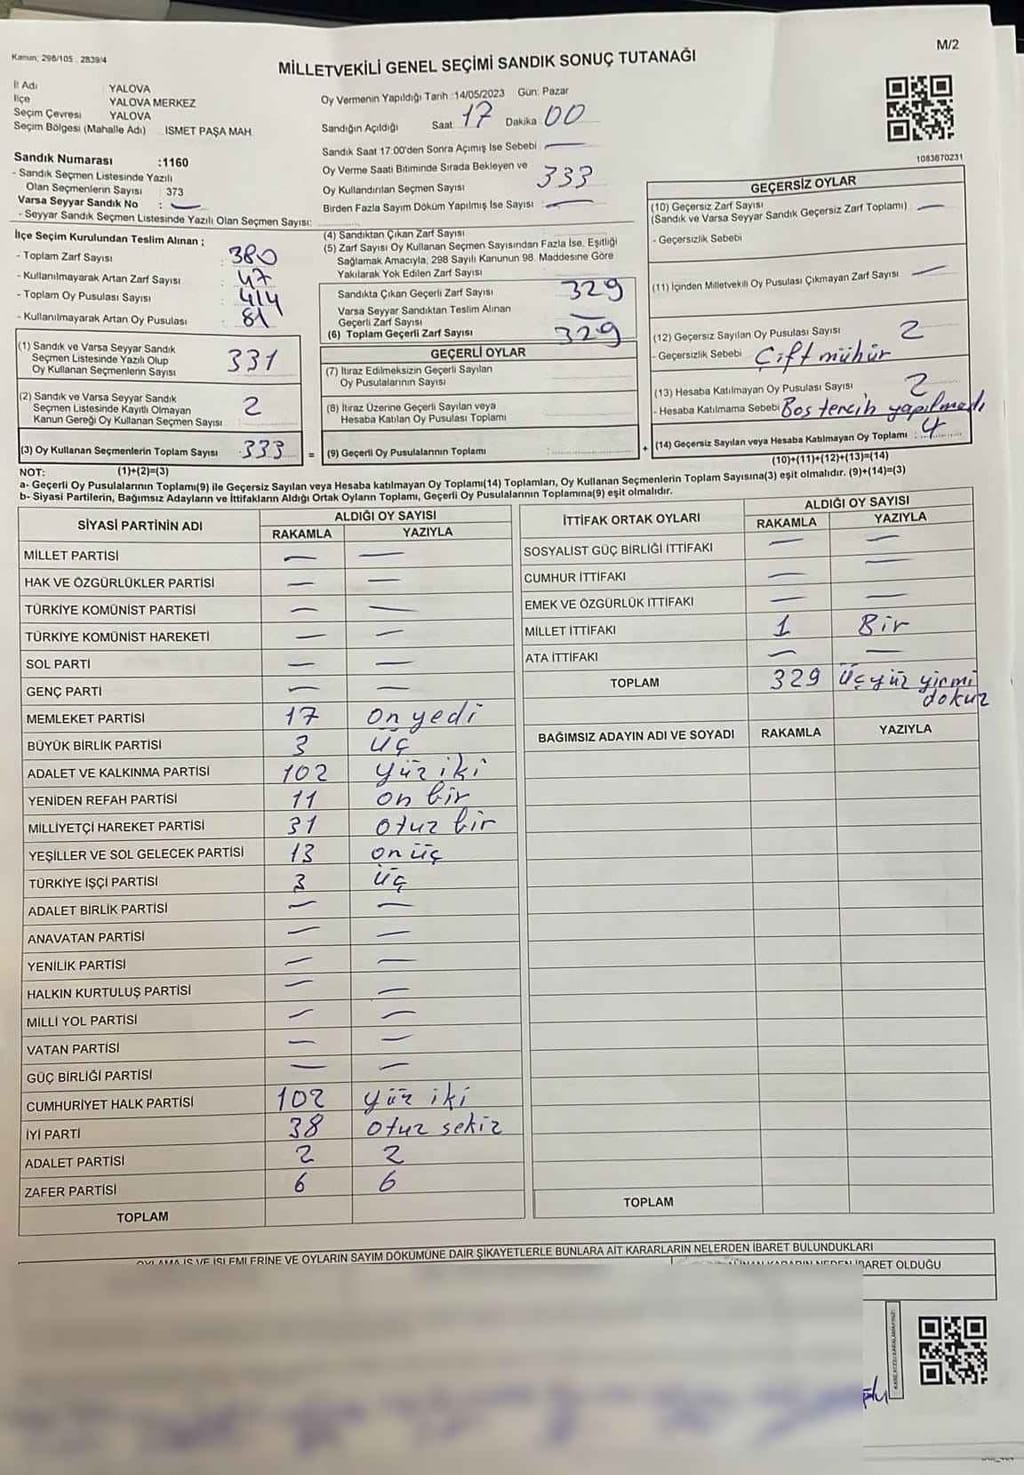 M/2
Kanun; 298/105 2839/4
MİLLETVEKİLİ GENEL SEÇİMİ SANDIK SONUÇ TUTANAĞI
İl Adı YALOVA
İlçe YALOVA MERKEZ
Seçim Çevresi YALOVA
Seçim Bölgesi (Mahalle Adı) İSMET PAŞA MAH.
Oy Vermenin Yapıldığı Tarih :14/05/2023 Gün: Pazar
Sandığın Açıldığı Saat 17 Dakika 00
Sandık Saat 17:00'den Sonra Açımış İse Sebebi —
Oy Verme Saati Bitiminde Sırada Bekleyen ve
Oy Kullandırılan Seçmen Sayısı 333
Birden Fazla Sayım Döküm Yapılmış İse Sayısı : —
1083870231
Sandık Numarası :1160
- Sandık Seçmen Listesinde Yazılı
Olan Seçmenlerin Sayısı : 373
Varsa Seyyar Sandık No : —
- Seyyar Sandık Seçmen Listesinde Yazılı Olan Seçmen Sayısı:
İlçe Seçim Kurulundan Teslim Alınan ;
- Toplam Zarf Sayısı : 380
- Kullanılmayarak Artan Zarf Sayısı : 47
- Toplam Oy Pusulası Sayısı : 414
- Kullanılmayarak Artan Oy Pusulası : 81
(1) Sandık ve Varsa Seyyar Sandık
Seçmen Listesinde Yazılı Olup
Oy Kullanan Seçmenlerin Sayısı 331
(2) Sandık ve Varsa Seyyar Sandık
Seçmen Listesinde Kayıtlı Olmayan
Kanun Gereği Oy Kullanan Seçmen Sayısı 2
(3) Oy Kullanan Seçmenlerin Toplam Sayısı 333
(1)+(2)=(3)
(4) Sandıktan Çıkan Zarf Sayısı
(5) Zarf Sayısı Oy Kullanan Seçmen Sayısından Fazla İse, Eşitliği
Sağlamak Amacıyla, 298 Sayılı Kanunun 98. Maddesine Göre
Yakılarak Yok Edilen Zarf Sayısı
Sandıkta Çıkan Geçerli Zarf Sayısı 329
Varsa Seyyar Sandıktan Teslim Alınan
Geçerli Zarf Sayısı —
(6) Toplam Geçerli Zarf Sayısı 329
GEÇERLİ OYLAR
(7) İtiraz Edilmeksizin Geçerli Sayılan
Oy Pusulalarının Sayısı
(8) İtiraz Üzerine Geçerli Sayılan veya
Hesaba Katılan Oy Pusulası Toplamı
= (9) Geçerli Oy Pusulalarının Toplamı
GEÇERSİZ OYLAR
(10) Geçersiz Zarf Sayısı —
(Sandık ve Varsa Seyyar Sandık Geçersiz Zarf Toplamı)
- Geçersizlik Sebebi
(11) İçinden Milletvekili Oy Pusulası Çıkmayan Zarf Sayısı —
(12) Geçersiz Sayılan Oy Pusulası Sayısı 2
- Geçersizlik Sebebi Çift mühür
(13) Hesaba Katılmayan Oy Pusulası Sayısı 2
- Hesaba Katılmama Sebebi Boş tercih yapılmadı
+ (14) Geçersiz Sayılan veya Hesaba Katılmayan Oy Toplamı : 4
(10)+(11)+(12)+(13)=(14)
NOT:
a- Geçerli Oy Pusulalarının Toplamı(9) ile Geçersiz Sayılan veya Hesaba katılmayan Oy Toplamı(14) Toplamları, Oy Kullanan Seçmenlerin Toplam Sayısına(3) eşit olmalıdır. (9)+(14)=(3)
b- Siyasi Partilerin, Bağımsız Adayların ve İttifakların Aldığı Ortak Oyların Toplamı, Geçerli Oy Pusulalarının Toplamına(9) eşit olmalıdır.
SİYASİ PARTİNİN ADI ALDIĞI OY SAYISI
RAKAMLA YAZIYLA
MİLLET PARTİSİ — —
HAK VE ÖZGÜRLÜKLER PARTİSİ — —
TÜRKİYE KOMÜNİST PARTİSİ — —
TÜRKİYE KOMÜNİST HAREKETİ — —
SOL PARTİ — —
GENÇ PARTİ — —
MEMLEKET PARTİSİ 17 on yedi
BÜYÜK BİRLİK PARTİSİ 3 üç
ADALET VE KALKINMA PARTİSİ 102 yüz iki
YENİDEN REFAH PARTİSİ 11 on bir
MİLLİYETÇİ HAREKET PARTİSİ 31 otuz bir
YEŞİLLER VE SOL GELECEK PARTİSİ 13 on üç
TÜRKİYE İŞÇİ PARTİSİ 3 üç
ADALET BİRLİK PARTİSİ — —
ANAVATAN PARTİSİ — —
YENİLİK PARTİSİ — —
HALKIN KURTULUŞ PARTİSİ — —
MİLLİ YOL PARTİSİ — —
VATAN PARTİSİ — —
GÜÇ BİRLİĞİ PARTİSİ — —
CUMHURİYET HALK PARTİSİ 102 yüz iki
İYİ PARTİ 38 otuz sekiz
ADALET PARTİSİ 2 2
ZAFER PARTİSİ 6 6
TOPLAM
İTTİFAK ORTAK OYLARI ALDIĞI OY SAYISI
RAKAMLA YAZIYLA
SOSYALİST GÜÇ BİRLİĞİ İTTİFAKI — —
CUMHUR İTTİFAKI — —
EMEK VE ÖZGÜRLÜK İTTİFAKI — —
MİLLET İTTİFAKI 1 Bir
ATA İTTİFAKI — —
TOPLAM 329 üçyüz yirmi
dokuz
BAĞIMSIZ ADAYIN ADI VE SOYADI RAKAMLA YAZIYLA
TOPLAM
İŞ VE İŞLEMLERİNE VE OYLARIN SAYIM DÖKÜMÜNE DAİR ŞİKAYETLERLE BUNLARA AİT KARARLARIN NELERDEN İBARET BULUNDUKLARI
KARARIN NEDEN İBARET OLDUĞU